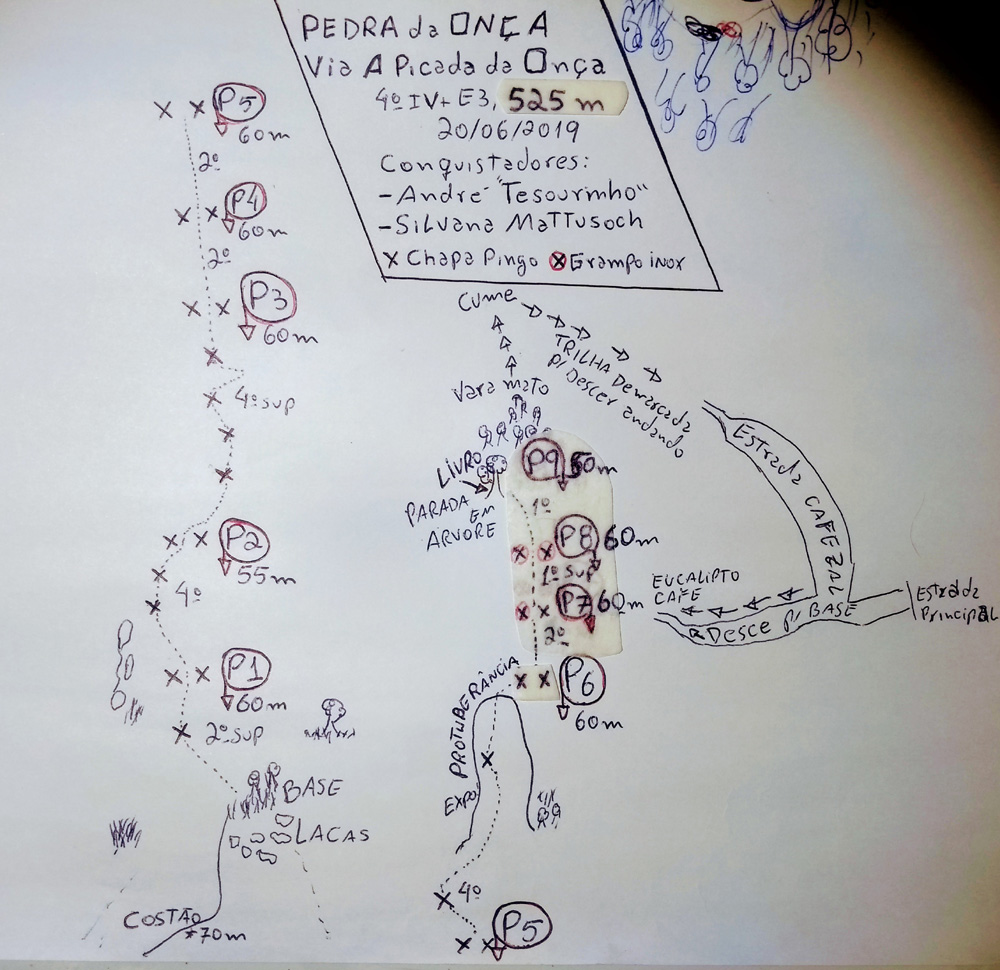 PEDRA da ONÇA
Via A Picada da Onça
4º IV+ E3, 525 m
20/06/2019
Conquistadores:
- André "Tesourinho"
- Silvana Mattusoch
x Chapa Pingo ⊗ Grampo inox
P5
60m
2º
P4
60m
2º
P3
60m
4º sup
P2
55m
4º
P1
60m
2º sup
BASE
LACAS
COSTÃO
*70m
Cume
TRILHA Demarcada
p/ Descer andando
Vara mato
LIVRO
PARADA
EM
ARVORE
P9 50m
1º
P8 60m
1º sup
P7 60m
2º
P6
60m
PROTUBERÂNCIA
EXPO
4º
P5
Estrada CAFEZAL
EUCALIPTO
CAFE
Desce p/ BASE
Estrada
Principal